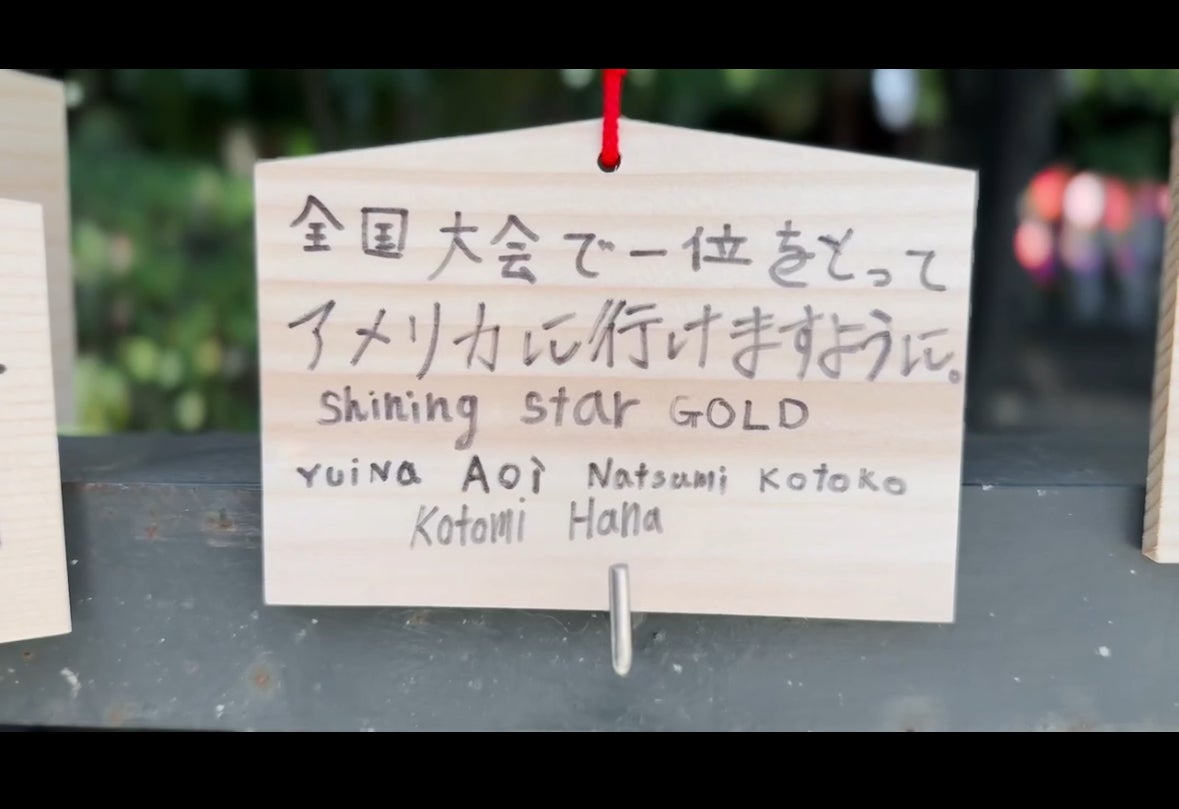 全国大会で一位をとって
アメリカに行けますように。
Shining star GOLD
YUiNa AOi Natsumi Kotoko
Kotomi Hana